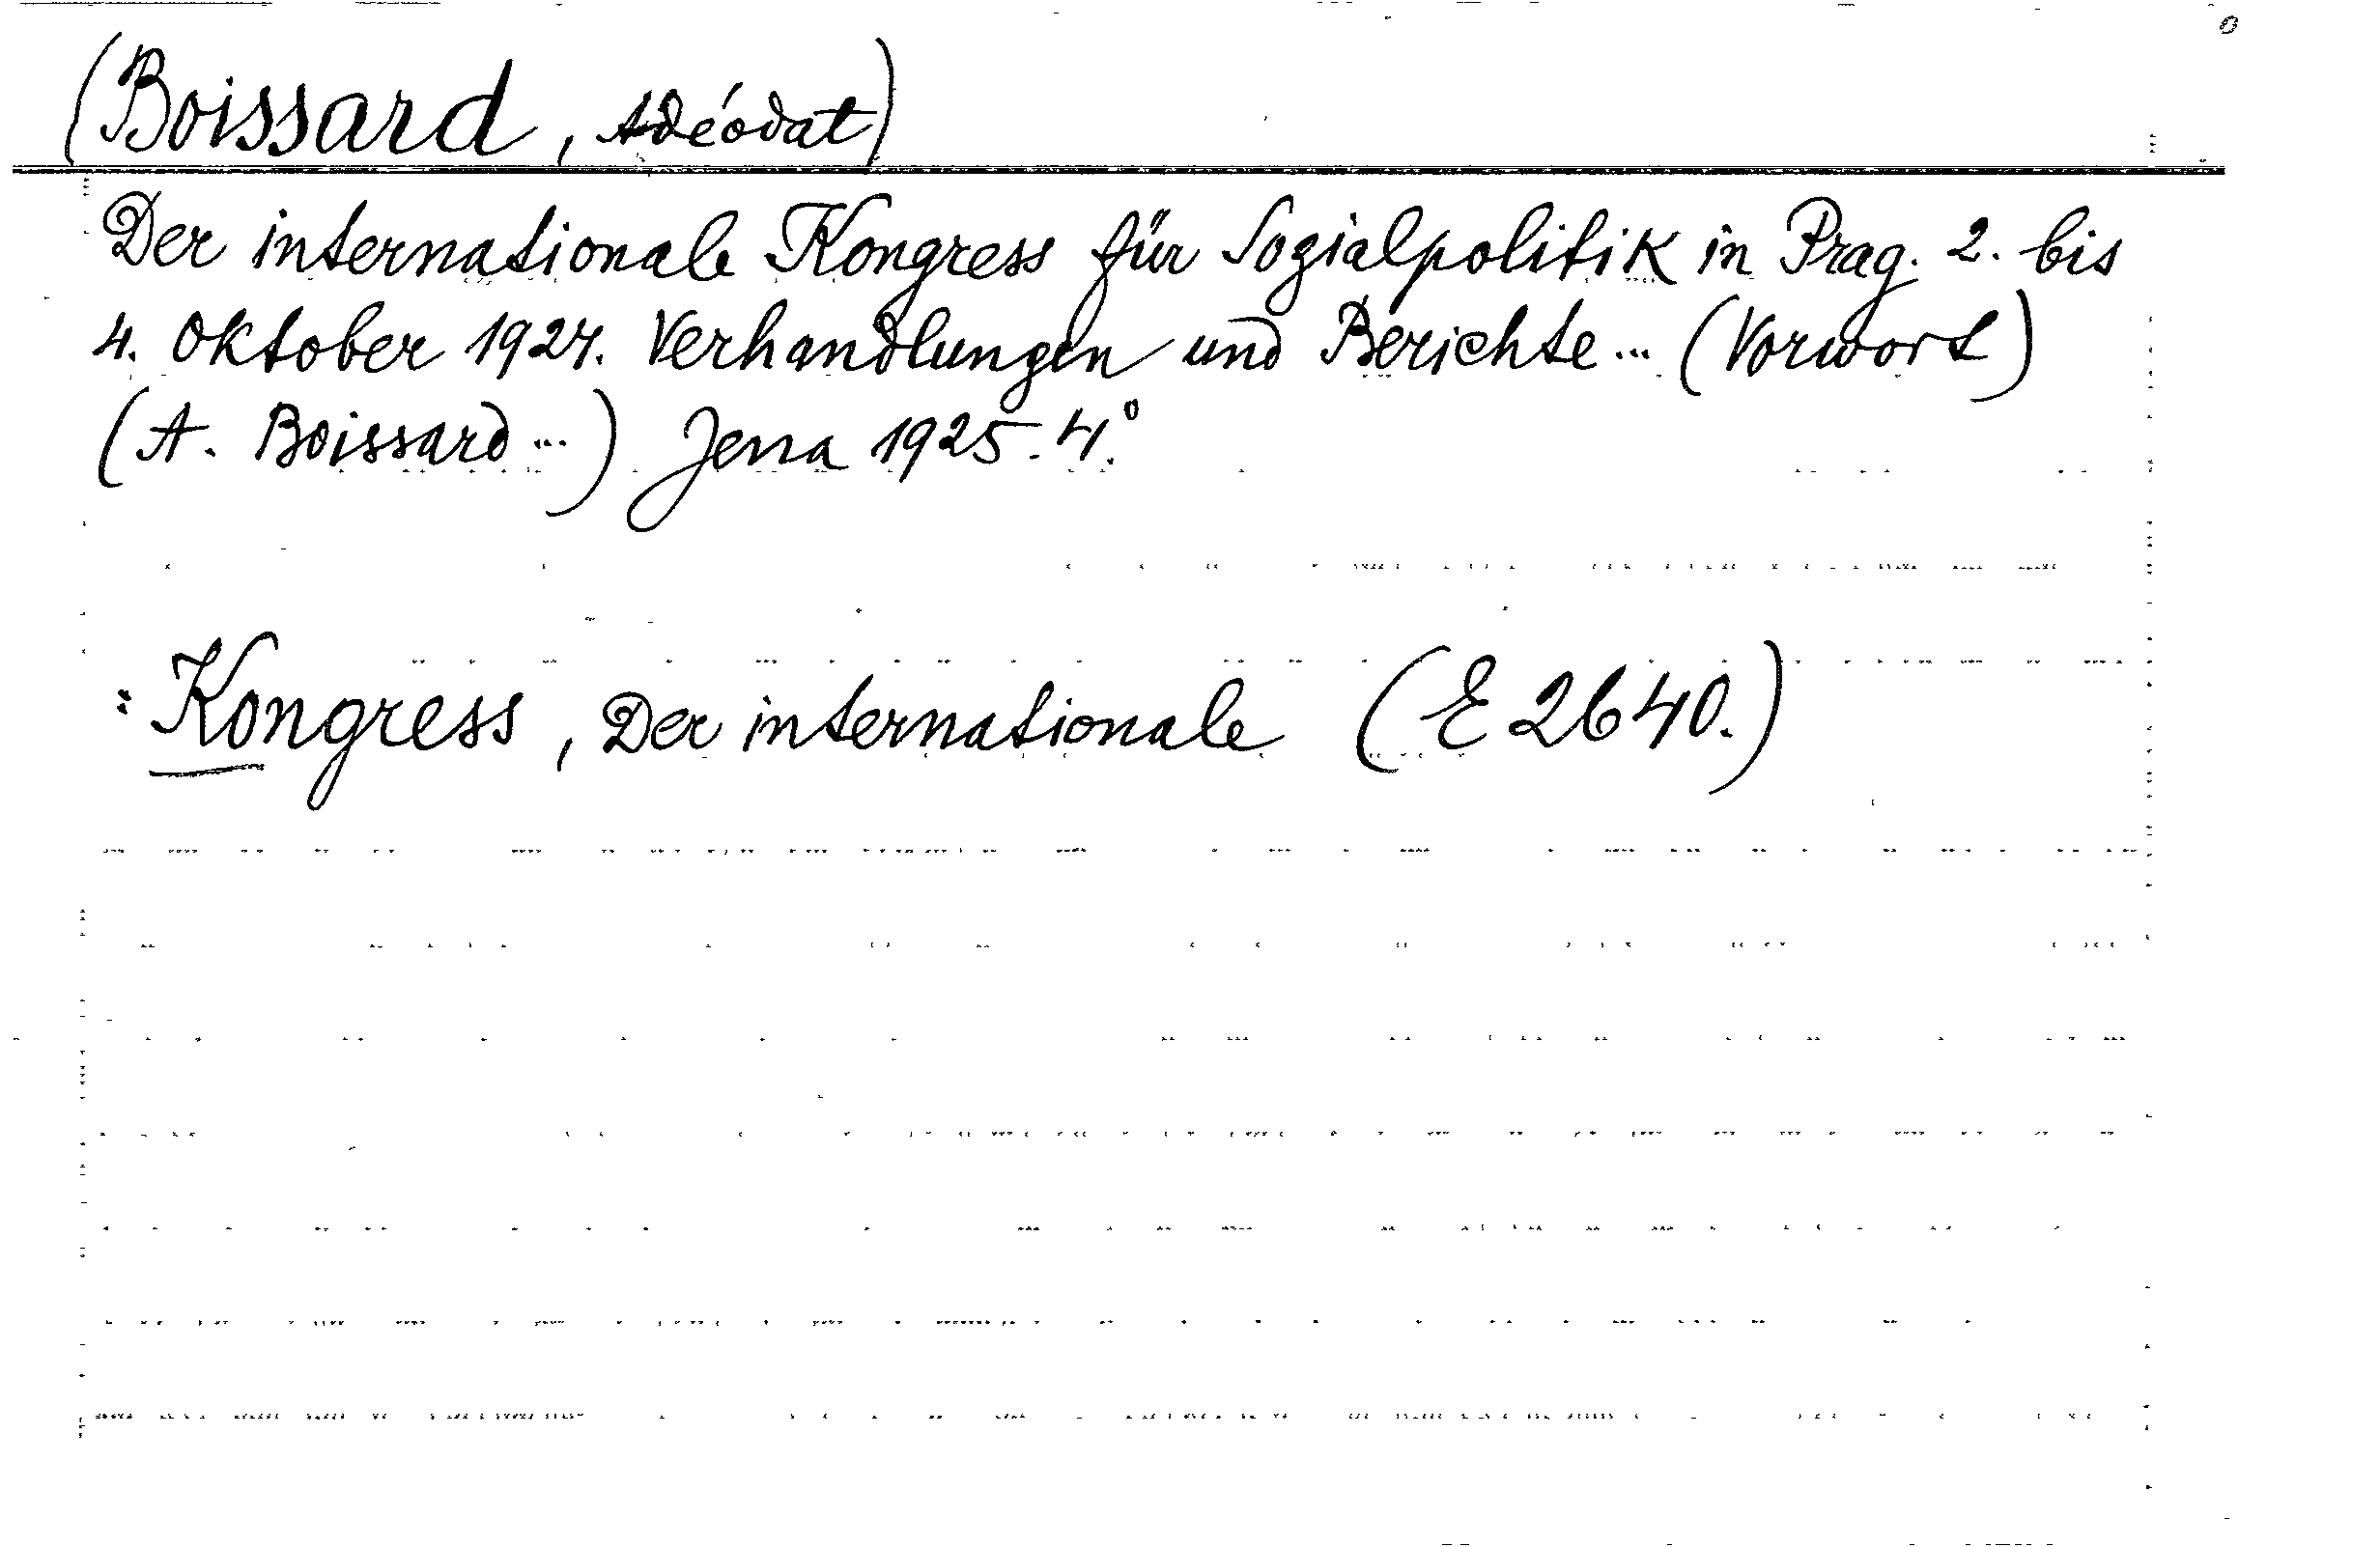 (Boissard, Adéodat)
Der internationale Kongress für Sozialpolitik in Prag. 2. bis
4. Oktober 1924. Verhandlungen und Berichte... (Vorwort)
(A. Boissard...) Jena 1925. 4.°
: Kongress, Der internationale (E 2640.)